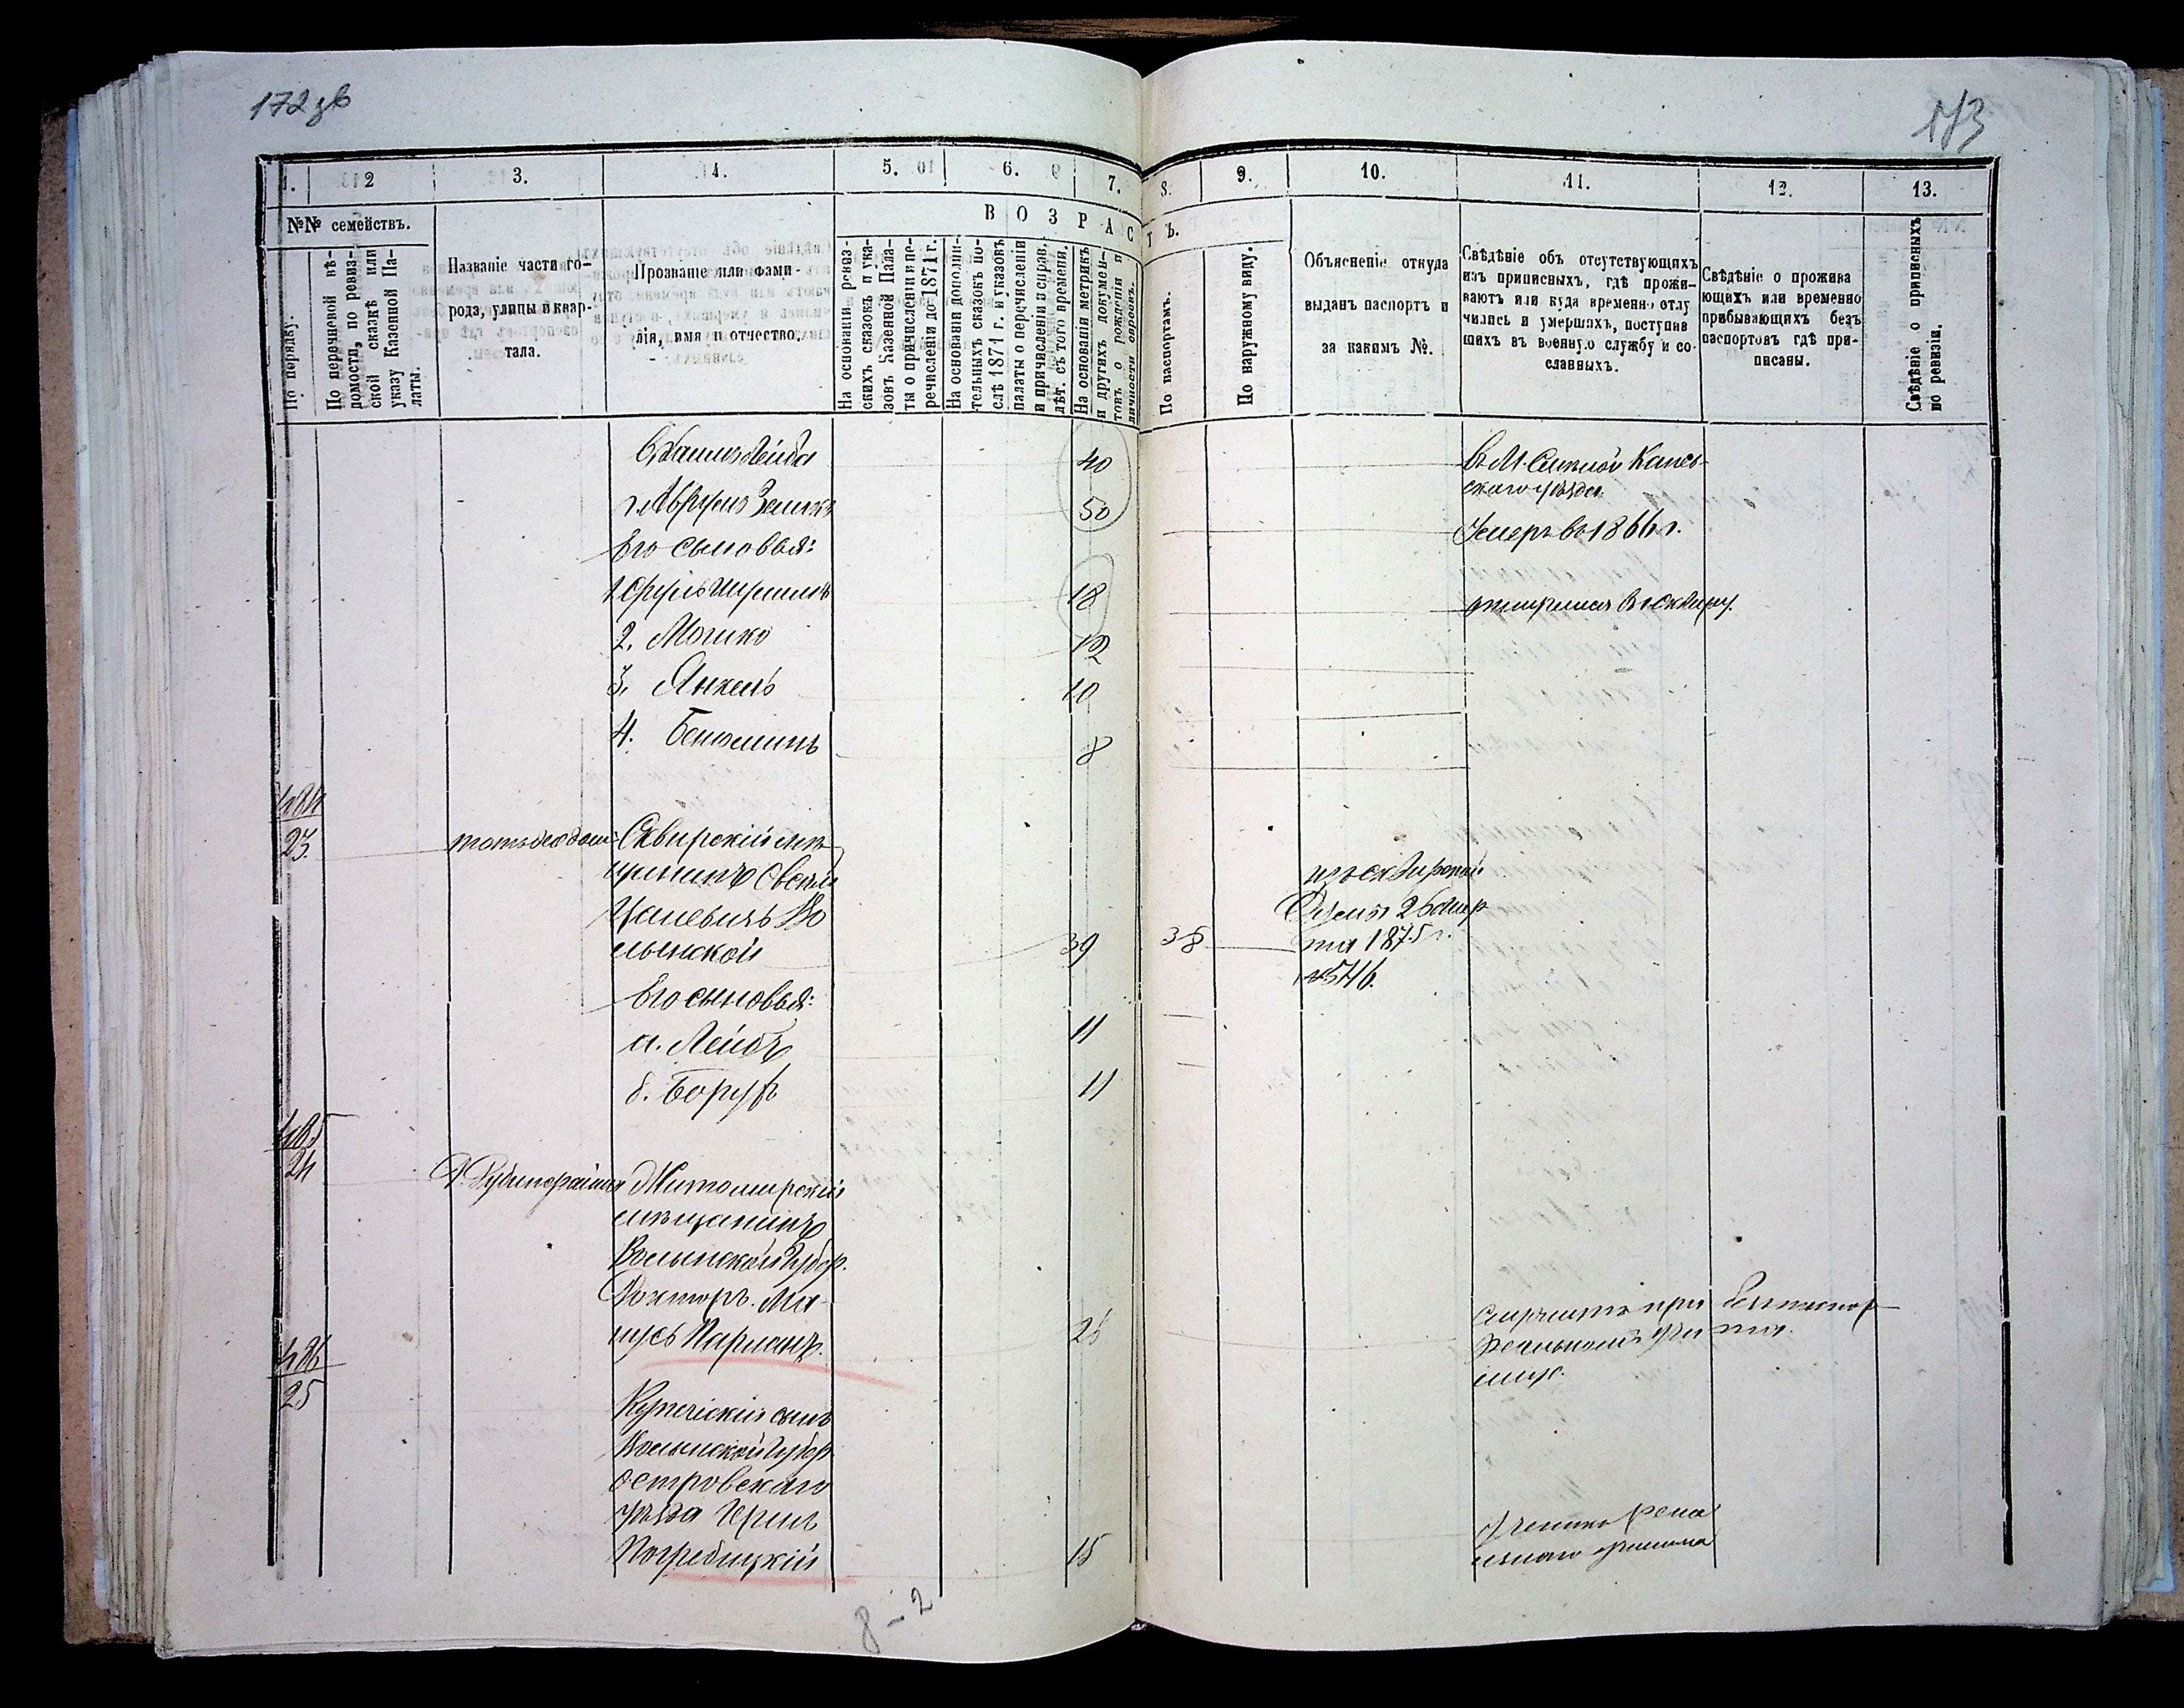 172 зв
173
1. 2 3. 4. 5. 6. 7. 8. 9. 10. 11. 12. 13.
№№ семействъ.
По порядку.
По перечневой вѣ-
домости, по ревиз-
ской сказкѣ или
указу Казенной Па-
латы.
Названіе части го-
рода, улицы и квар-
тала.
Прозваніе или фами-
лія, имя и отчество.
ВОЗРАСТЪ.
На основаніи ревиз-
скихъ сказокъ и ука-
зовъ Казенной Пала-
ты о причисленіи и пе-
речисленіи до 1871 г.
На основаніи дополни-
тельныхъ сказокъ по-
слѣ 1871 г. и указовъ
палаты о перечисленіи
и причисленіи и справ.
лѣт. съ того времени.
На основаніи метрикъ
и другихъ докумен-
товъ о рожденіи и
личности евреевъ.
По паспортамъ.
По наружному виду.
Объясненіе откуда
выданъ паспортъ и
за какимъ №.
Свѣдѣніе объ отсутствующихъ
изъ приписныхъ, гдѣ прожи-
ваютъ или куда временно отлу
чились и умершихъ, поступив
шихъ въ военную службу и со-
сланныхъ.
Свѣдѣніе о прожива
ющихъ или временно
прибывающихъ безъ
паспортовъ гдѣ при-
писаны.
Свѣдѣніе о приписныхъ
по ревизіи.
Лейба 40
въ М. Канев-
скаго уѣзда
50
Умеръ въ 1866 г.
Его сыновья:
1 18
2. Мошко 12
3. Янкель 10
4. Беньюминъ 8
484
23.
тотъ же домъ
Сквирскій мѣ-
щанинъ
Во
лынской 39 38
изъ Сквирской
Думы 26 мар
та 1875 г.
№ 546.
Его сыновья:
а. Лейбъ 11
б. Борух 11
485
24
Д. Рубинфайна
Житомирскій
мѣщанинъ
Волынской Губер.
Докторъ. Ма-
нусь
при
Реальномъ учи
лищѣ.
486
25
Купеческій сынъ
Волынской Губер
Островскаго
уѣзда Герш
Погребицкій 15
Ученикъ реа
льнаго
8 – 2